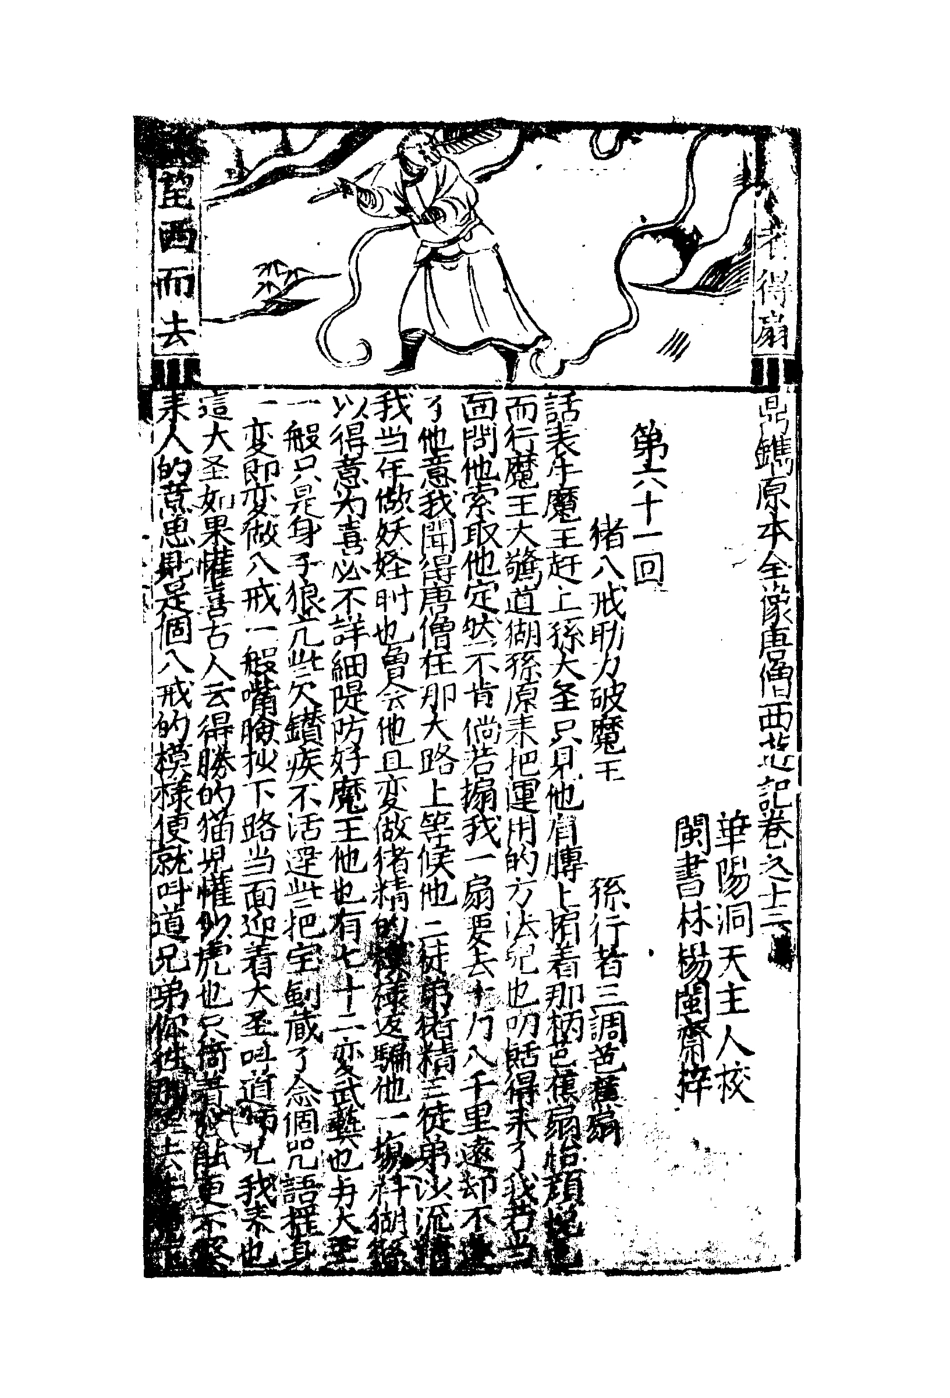 者得扇
望西而去
鼎鐫原本全像唐僧西遊記卷之十三
華陽洞天主人校
閩書林楊閩齋梓
第六十一回
猪八戒助力破魔王　孫行者三調芭蕉扇
話表牛魔王赶上孫大圣只見他肩膊上掮着那柄芭蕉扇怡顔悦色
而行魔王大驚道猢猻原来把運用的方法兒也叨餂得来了我若当
面問他索取他定然不肯倘若搧我一扇要去十万八千里遠却不遂
了他意我聞得唐僧在那大路上等候他二徒弟猪精三徒弟沙流精
我当年做妖怪时也曾会他且变做猪精的模樣返騙他一塲料猢猻
以得意为喜必不詳細隄防好魔王他也有七十二変武藝也与大圣
一般只是身子狼犺些欠鑽疾不活還些把宝劍藏了念個咒語揺身
一变即变做八戒一般嘴臉抄下路当面迎着大圣叫道師兄我来也
這大圣如果懽喜古人云得勝的猫兒懽似虎也只倚着強能更不察
来人的意思見是個八戒的模樣便就叫道兄弟你徃那里去牛魔